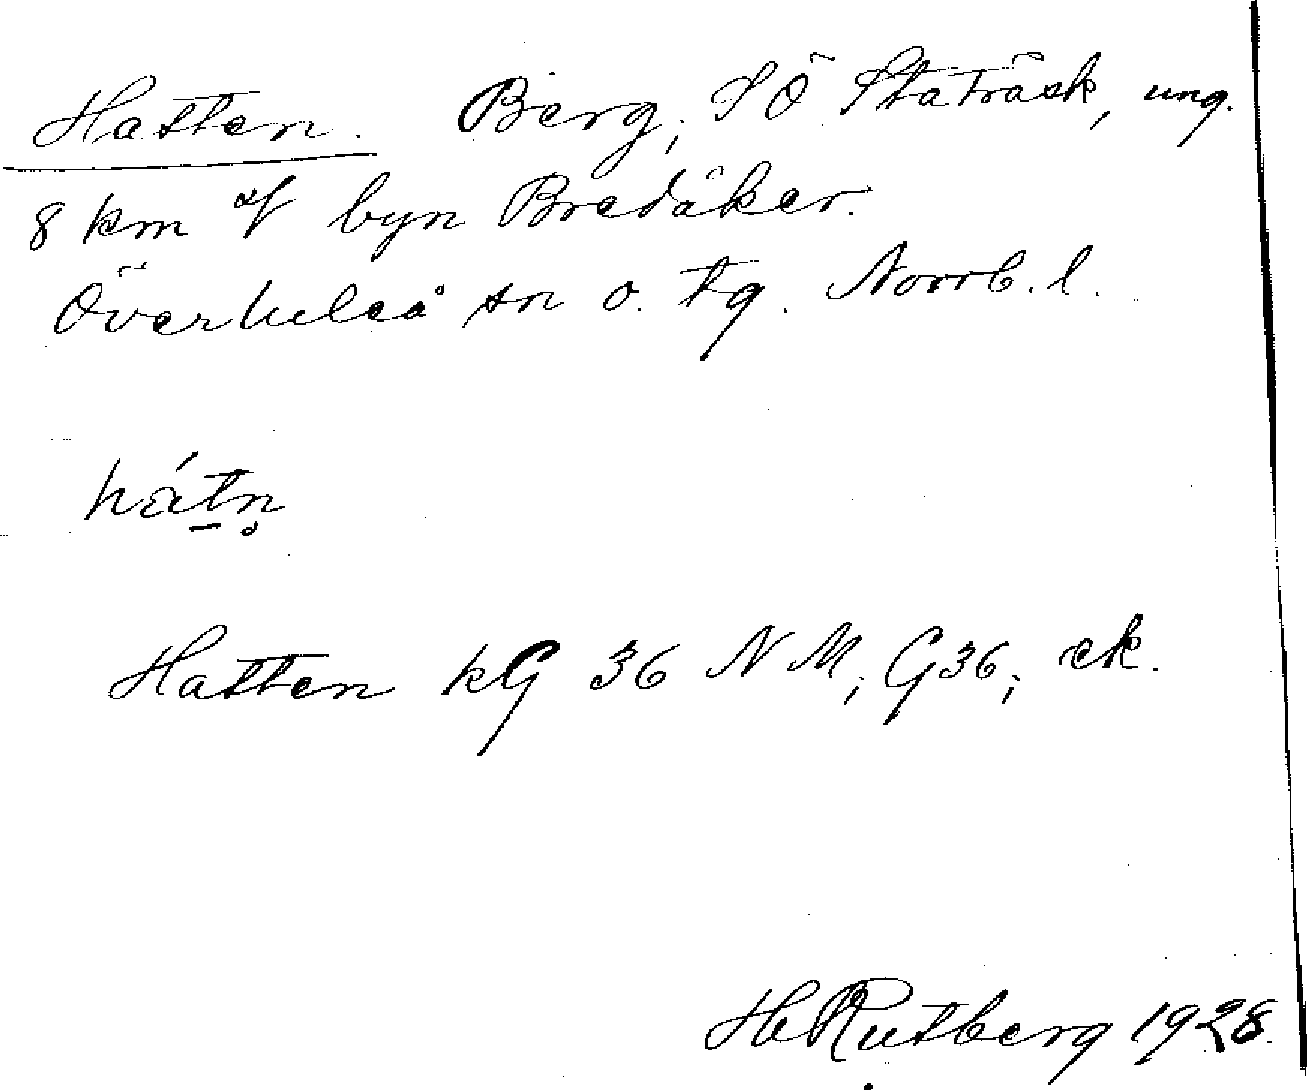 Hatten. Berg, SÖ Stäträsk, ung.
8 km af byn Bredåker.
Överluleå sn o. tg. Norrb. l.
hátn̥
Hatten kG 36 NM; G36; ek.
H Rutberg 1928